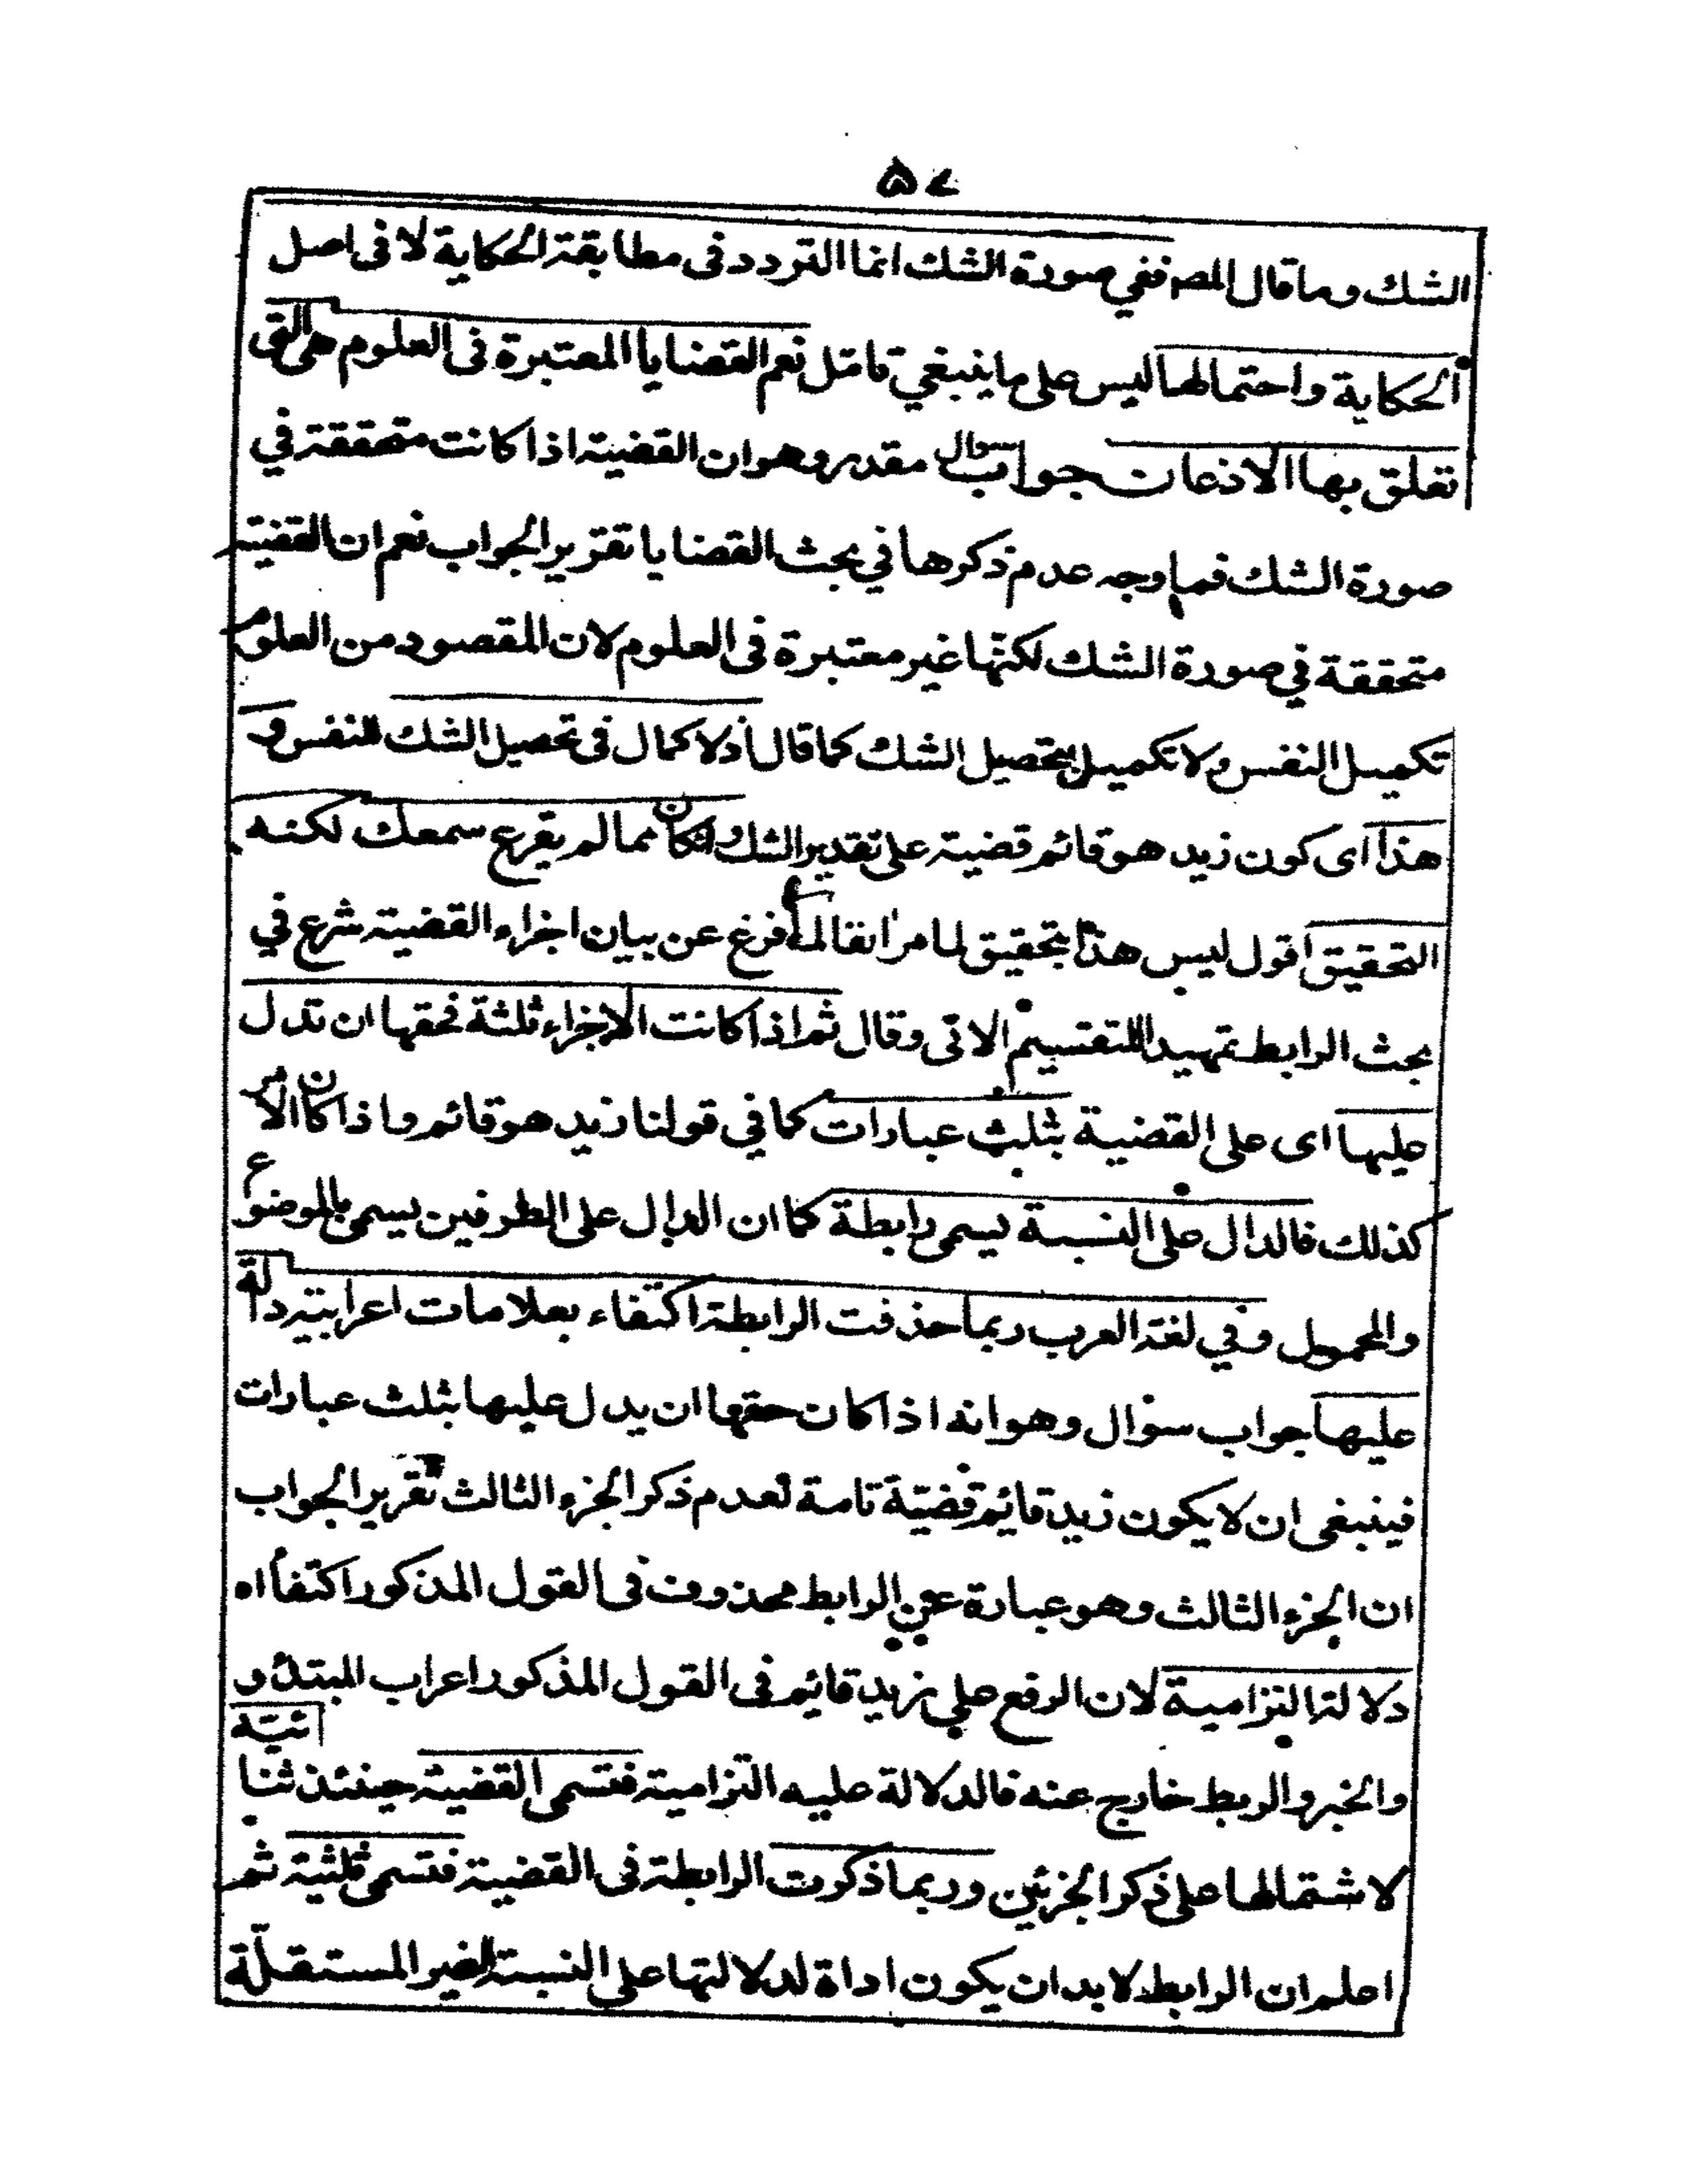 ٥٧
الشك وما قال المصـ ففي صورة الشك انما التردد فى مطابقة الحكاية لا فى اصل
الحكاية واحتمالها ليس على ما ينبغي تامل نعم القضايا المعتبرة فى العلوم هى التى
تعلق بها الاذعان جواب سوال مقدر وهو ان القضية اذا كانت متحققة في
صورة الشك فما وجه عدم ذكرها في بحث القضايا تقرير الجواب نعم ان القضية
متحققة في صورة الشك لكنها غير معتبرة فى العلوم لان المقصود من العلوم
تكميل النفس ولا تكميل بتحصيل الشك كما قال اذ لا كمال فى تحصيل الشك للنفس و
هذا اى كون زيد هو قائم قضية على تقدير الشك وان كان مما لم يقرع سمعك لكنه
التحقيق اقول ليس هذا بتحقيق لما مر انفا لما فرغ عن بيان اجزاء القضية شرع في
بحث الرابط تمهيدا للتقسيم الاتى وقال ثم اذا كانت الاجزاء ثلثة فحقها ان تدل
عليها اى على القضية بثلث عبارات كما في قولنا زيد هو قائم واذا كان الامر
كذلك فالدال على النسبة يسمى رابطة كما ان الدال على الطرفين يسمى بالموضوع
والمحمول وفي لغة العرب ربما حذفت الرابطة اكتفاء بعلامات اعرابية دالة
عليها جواب سؤال وهو انه اذا كان حقها ان يدل عليها بثلث عبارات
فينبغى ان لا يكون زيد قائم قضيّة تامة لعدم ذكر الجزء الثالث تقرير الجواب
ان الجزء الثالث وهو عبارة عن الرابط محذوف فى القول المذكور اكتفأ اه
دلالة التزامية لان الرفع على زيد قائم فى القول المذكور اعراب المبتدأ و
والخبر والربط خارج عنه فالدلالة عليه التزامية فتسمى القضية حينئذ ثنائيّة
لاشتمالها على ذكر الجزئين وربما ذكرت الرابطة فى القضية فتسمى ثلثية ثم
اعلم ان الرابط لا بد ان يكون اداة لدلالتها على النسبة الغير المستقلّة